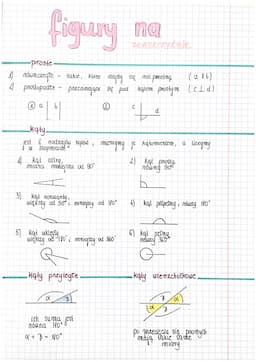 figury na
płaszczyźnie
proste
1) równoległe - takie, które nigdy się nie przetną (a ∥ b)
2) prostopadłe - przecinające się pod kątem prostym (c ⊥ d)
① a b ② c d
kąty
jest 6 rodzajów kątów, mierzymy je kątomierzem, a liczymy
w stopniach
1) kąt ostry, 2) kąt prosty,
mniejszy od 90° równy 90°
3) kąt rozwarty, 4) kąt półpełny, równy 180°
większy od 90°, mniejszy od 180°
5) kąt wklęsły 6) kąt pełny
większy od 180°, mniejszy od 360° równy 360°
kąty przyległe kąty wierzchołkowe
α β α β α β
ich suma jest po przecięciu się prostych
równa 180° mają takie same
α + β = 180° miary